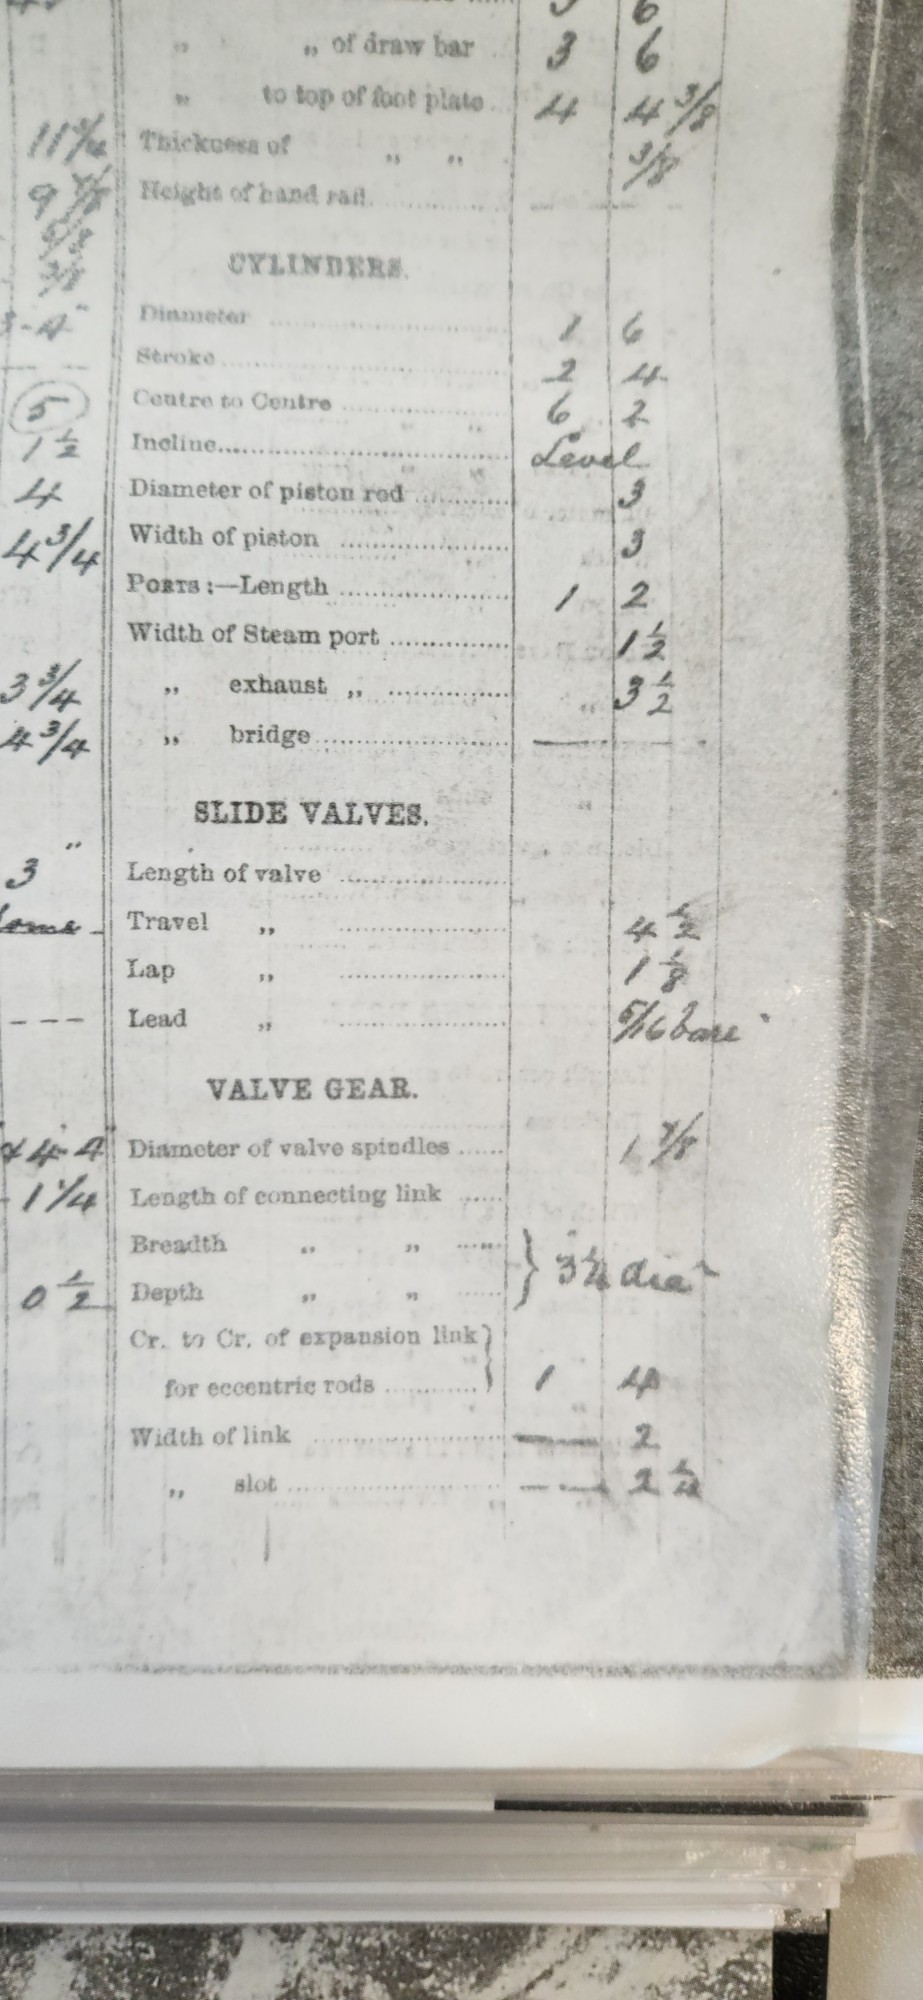 „ „ of draw bar 3 6
„ to top of foot plate 4 4 3/8
11 3/4 Thickness of „ „ 3/8
9 7/8 Height of hand rail
5/8
CYLINDERS.
3/8
Diameter 1 6
Stroke 2 4
5 Centre to Centre 6 2
1 1/2 Incline Level
4 Diameter of piston rod 3
4 3/4 Width of piston 3
PORTS :—Length 1 2
Width of Steam port 1 1/2
3 3/4 „ exhaust „ 3 1/2
4 3/4 „ bridge —
SLIDE VALVES.
3" Length of valve
Travel „ 4 1/2
Lap „ 1 1/8
--- Lead „ 5/16 bare
VALVE GEAR.
4-4" Diameter of valve spindles 1 7/8
1 1/4 Length of connecting link
Breadth „ „ } 3 1/4 dia
0 1/2 Depth „ „
Cr. to Cr. of expansion link }
for eccentric rods 1 4
Width of link — 2
„ slot — 2 1/4